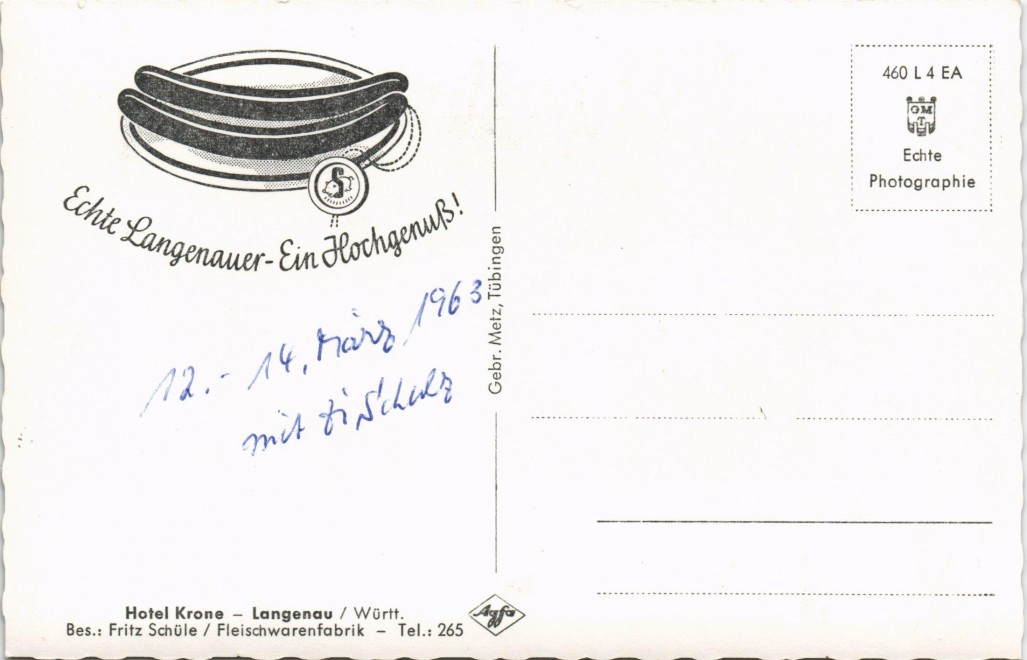 Echte Langenauer - Ein Hochgenuß!
S
12. - 14. März 1963
mit Schulz
Hotel Krone – Langenau / Württ.
Bes.: Fritz Schüle / Fleischwarenfabrik – Tel.: 265
Gebr. Metz, Tübingen
Agfa
460 L 4 EA
GM
T
Echte
Photographie